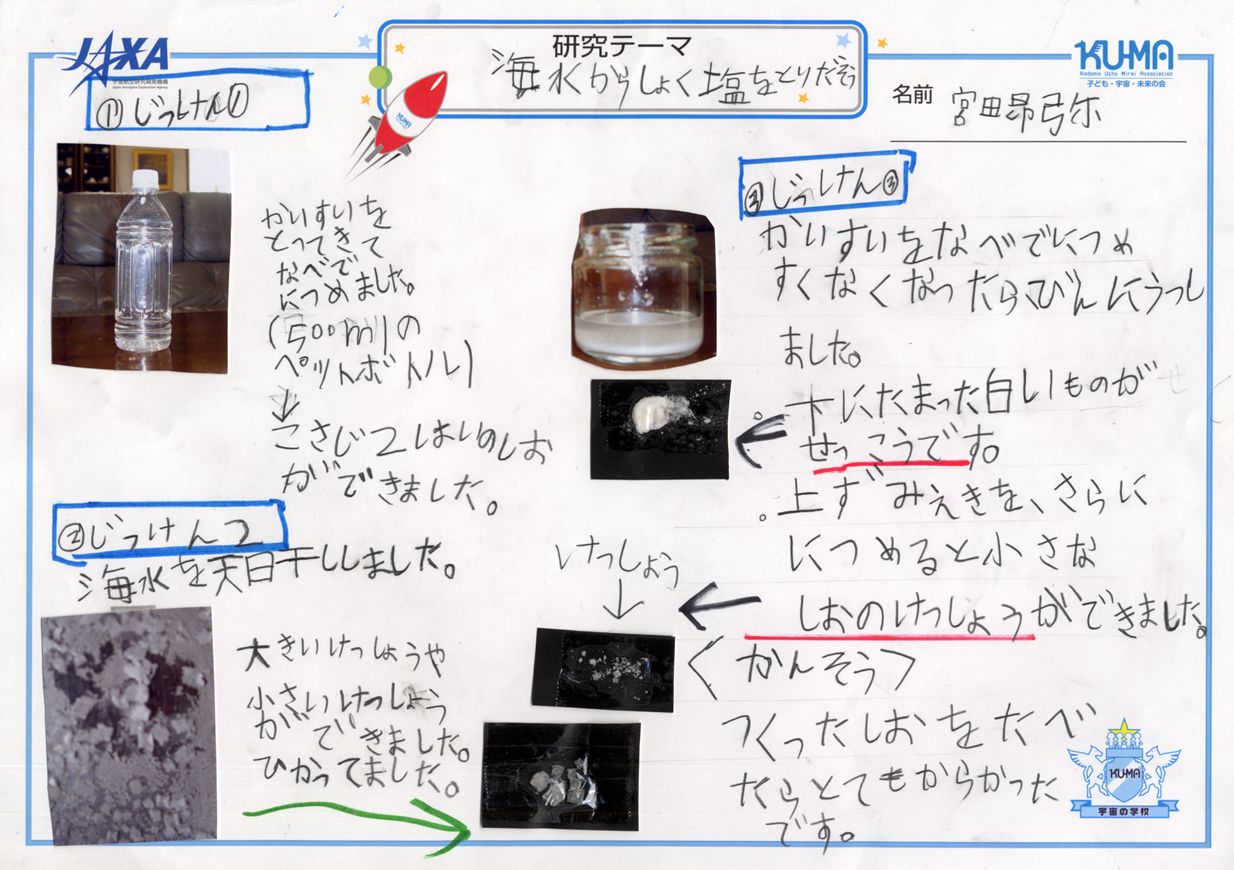 JAXA
宇宙航空研究開発機構
Japan Aerospace Exploration Agency
研究テーマ
海水からしょく塩をとりだそう
KUMA
KUMA
Kodomo Uchu Mirai Association
子ども・宇宙・未来の会
名前 宮田昂弥
①じっけん①
かいすいを
とってきて
なべで
につめました。
(500mlの
ペットボトル)
↓
こさじ2はいのしお
ができました。
②じっけん2
海水を天日干ししました。
大きいけっしょうや
小さいけっしょう
ができました。
ひかってました。
③じっけん③
かいすいをなべでにつめ
すくなくなったらびんにうつし
ました。
。下にたまった白いものが
せっこうです。
。上ずみえきを、さらに
につめると小さな
しおのけっしょうができました。
けっしょう
↓
〈かんそう〉
つくったしおをたべ
たらとてもからかった
です。
KUMA
宇宙の学校